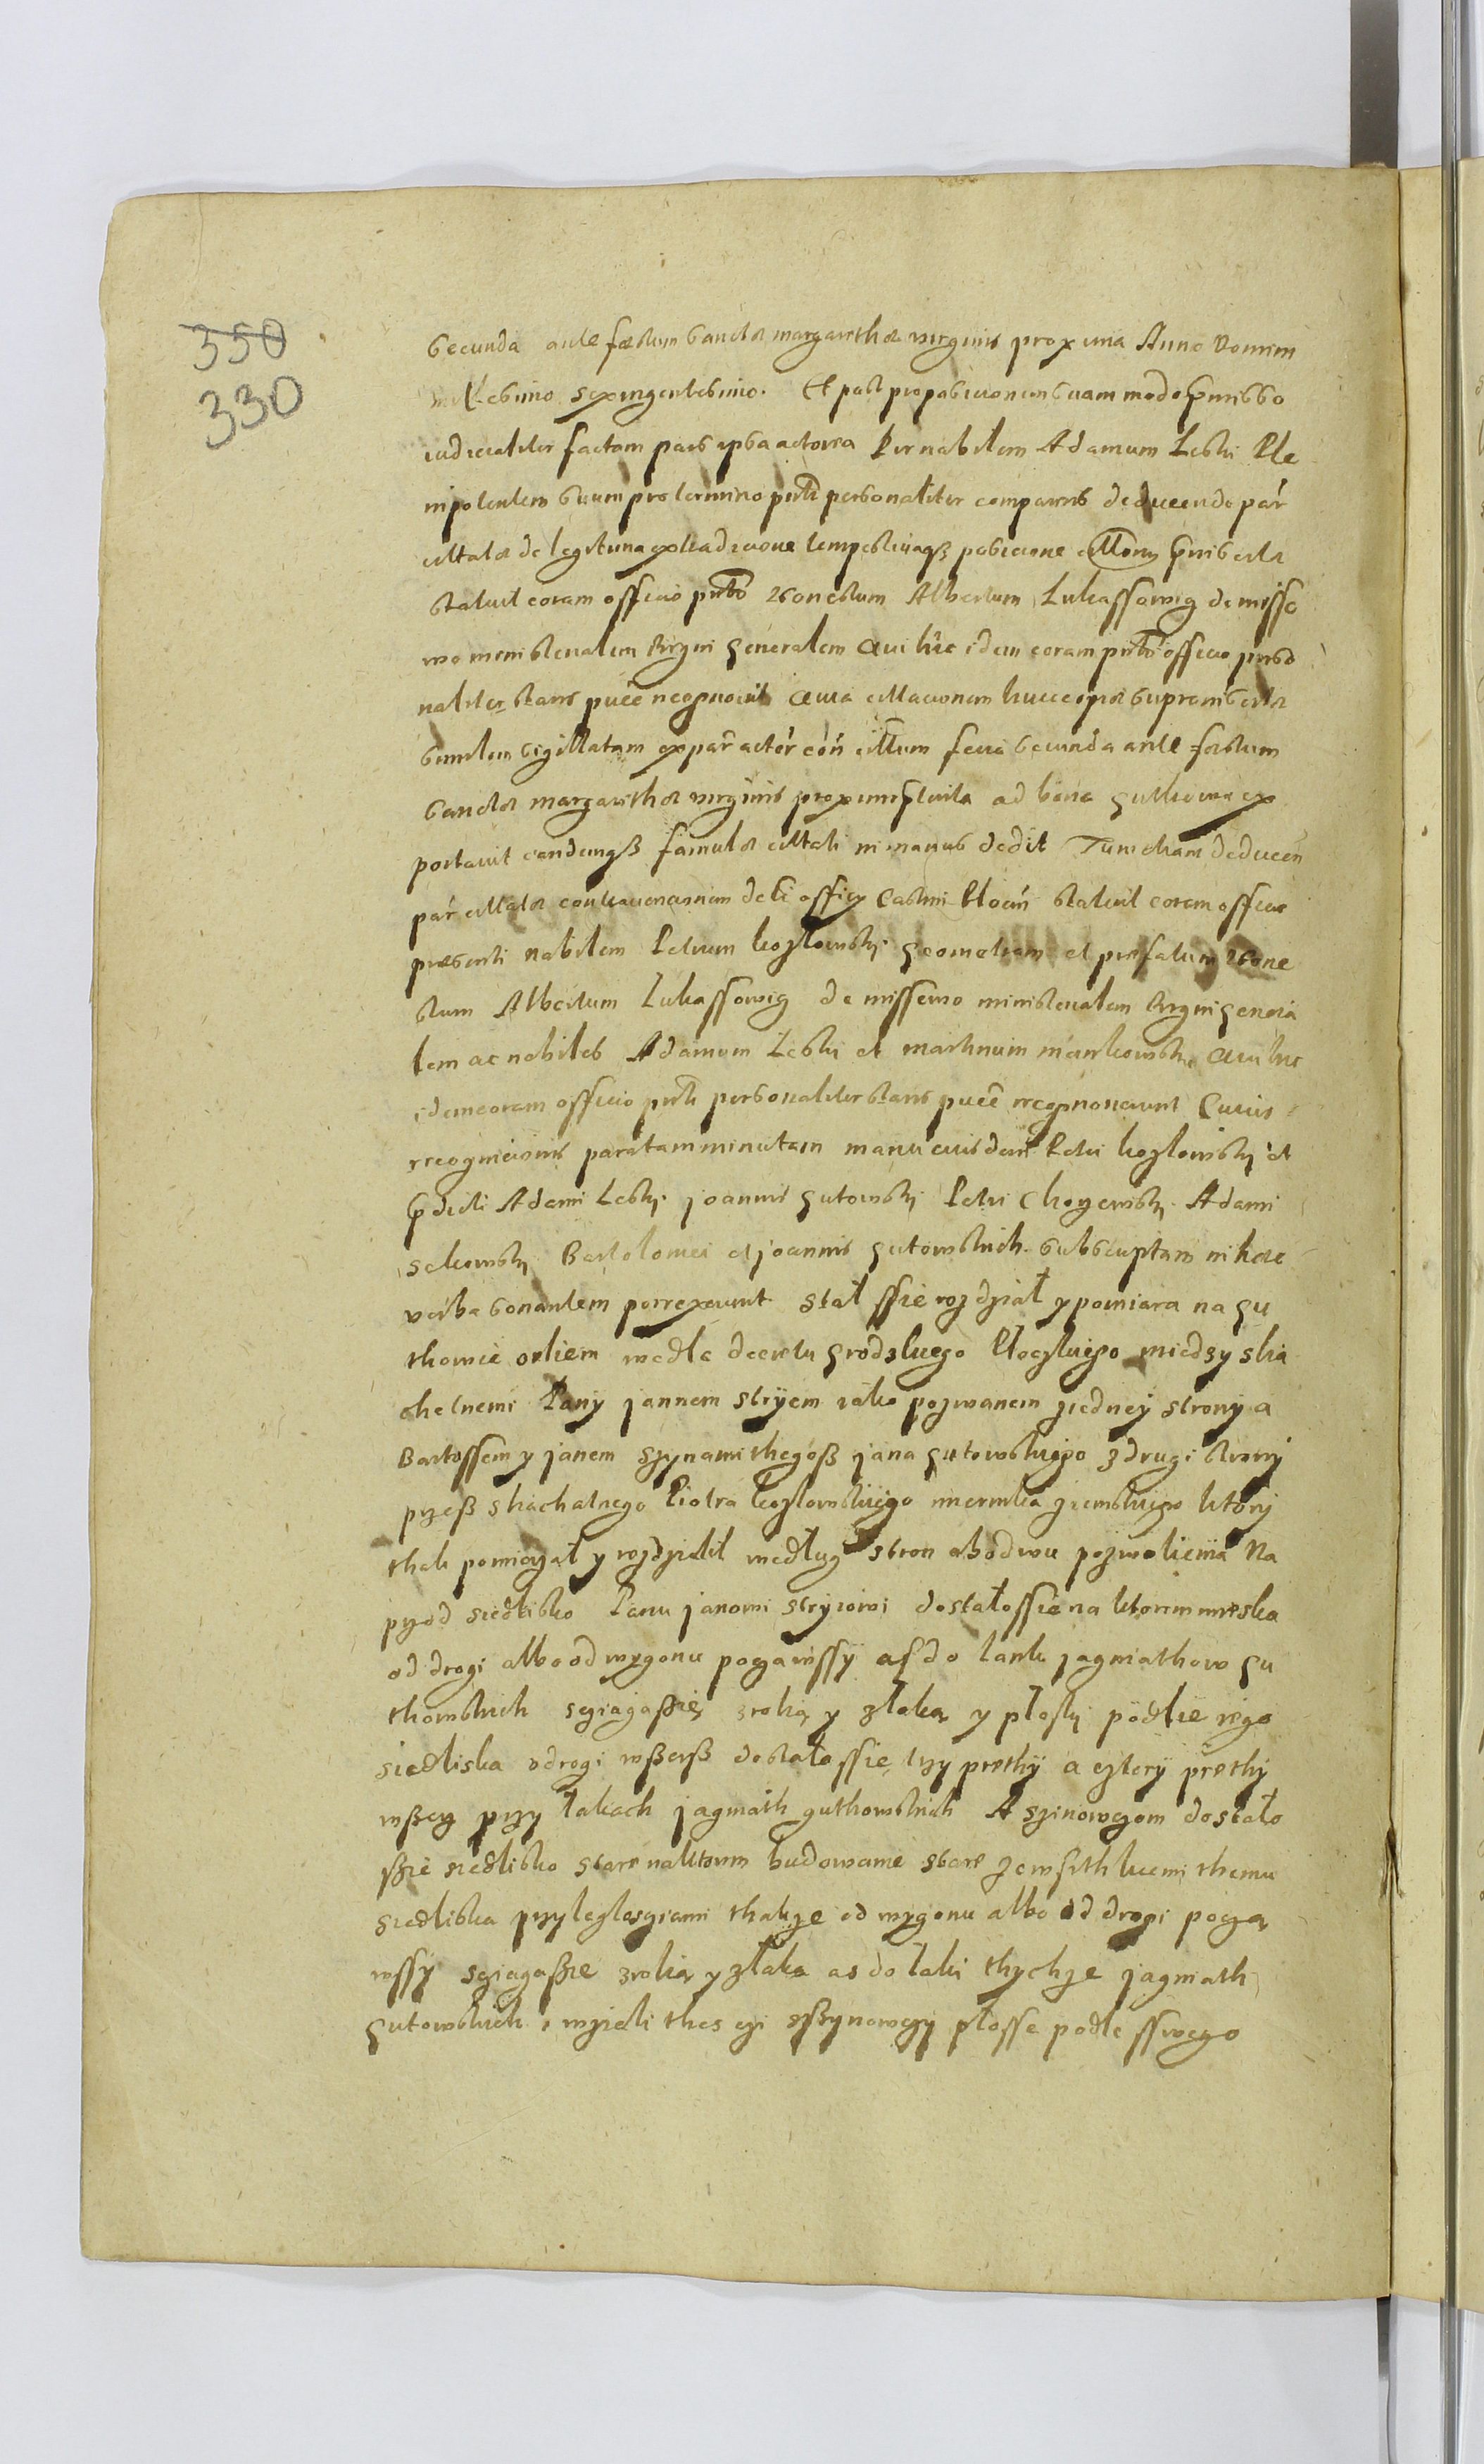 350
330
secunda ante festum Sanctæ margarethæ virginis proxima Anno Domini
millesimo sexingentesimo. Et post proposicionem suam modo præmisso
iudicialiter factam pars ipsa actorea Per nobilem Adamum Leski Ple
nipotentem suum pro termino pnti personaliter comparens deducendo par
citatæ de legitima extradicione tempestivaqß posicione præinsertæ
statuit coram officio pnti honestum Albertum Lukassowicz de misso
wo ministerialem Regni generalem Qui hic idem coram pnti officio perso
naliter stans pñce recognovit Quia citacionem huicce ipsi supra insertæ
similem sigillatam ex par actor con citatum feria secunda ante festum
Sanctæ margarethæ virginis proxime præterita ad bona guthowo ex
portavit eandemqß famulæ citati in manus dedit Tum etiam deducen
par citatæ contravencionem officy Castrin Plocen statuit coram officio
præsenti nobilem Petrum kozlowsky geometram et præfatum hone
stum Albertum Lukassowicz de missewo ministerialem Regni genera
lem ac nobiles Adamum Leski et martinum mankowsky Qui hic
idem coram officio pnti personaliter stans pñce recognoverunt Cuius
recognicionis paratam minutam manu eiusdem Petri kozlowsky et
prædicti Adami Lesky joannis gutowsky Petri Choyenssky Adami
sekowsky Bartolomei et joannis gutowskich subscriptam in hæc
verba sonantem porrexerunt Stał ssie rozdział y pomiara na gu
thowie orliem wedle decretu grodzkiego Płoczkiego miedzy sliа
chetnemi Pany jannem stryem iako pozwanem ziedney strony a
Bartossem y janem szynami thegoß jana gutowskiego z drugi strony
przeß sliachatnego Piotra kozlowskiego miernika ziemskiego ktory
thak pomierzał y rozdzielił według stron obodwu pozwolienia Na
przod siedlisko Panu janowi stryiowi dostałossie na ktorim mieska
od drogi albo od wygonu poczawssy aß do lank jagniathow gu
thowskich scziagaßie z rolią y z łaka y płosky podlie iego
siedliska odrogi wßerß dostałossie trzy prethy a cztery prethy
wßerz przy łakach jagniath guthowskich A szinowczom dostało
ßie siedlisko stare naktorim budowanie stare ze wßithkiemi themu
siedlisku przyleglosciami thakze od wygonu albo od drogi pocza
wssy scziagaßie z rolia y z łaka as do łaki thychze jagniath
gutowskich, wzieli thes czi sßynowczy płosse podle sswego